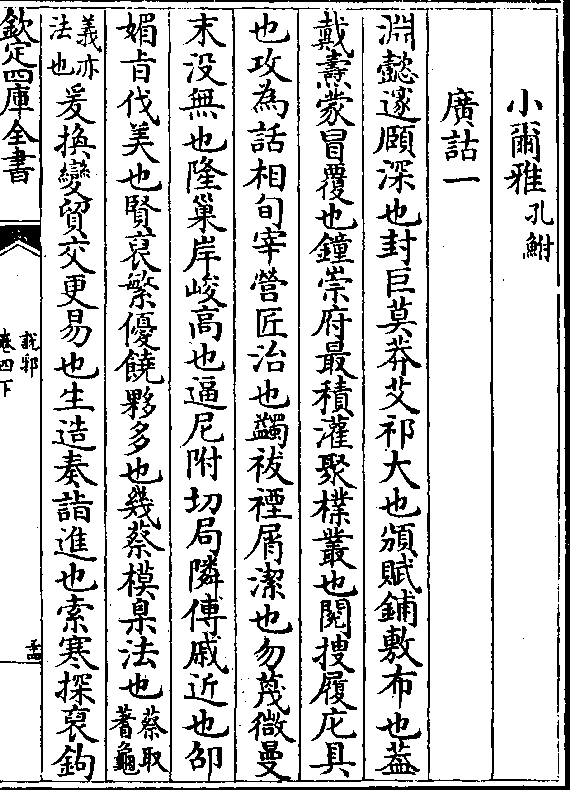 小爾雅孔鮒
廣詁一
淵懿邃賾深也封巨莫莽艾祁大也頒賦鋪敷布也葢
戴燾蒙冒覆也鐘崇府最積灌聚樸叢也閱搜履庀具
也攻為話相旬宰營匠治也蠲祓禋屑潔也勿蔑微曼
末没無也隆巢岸峻高也逼尼附切局隣傅戚近也邵
媚旨伐美也賢裒繁優饒夥多也幾蔡模臬法也蔡取蓍龜
義亦法也爰換變貿交更易也生造奏詣進也索寒探裒鉤
欽定四庫全書
說郛
卷四下